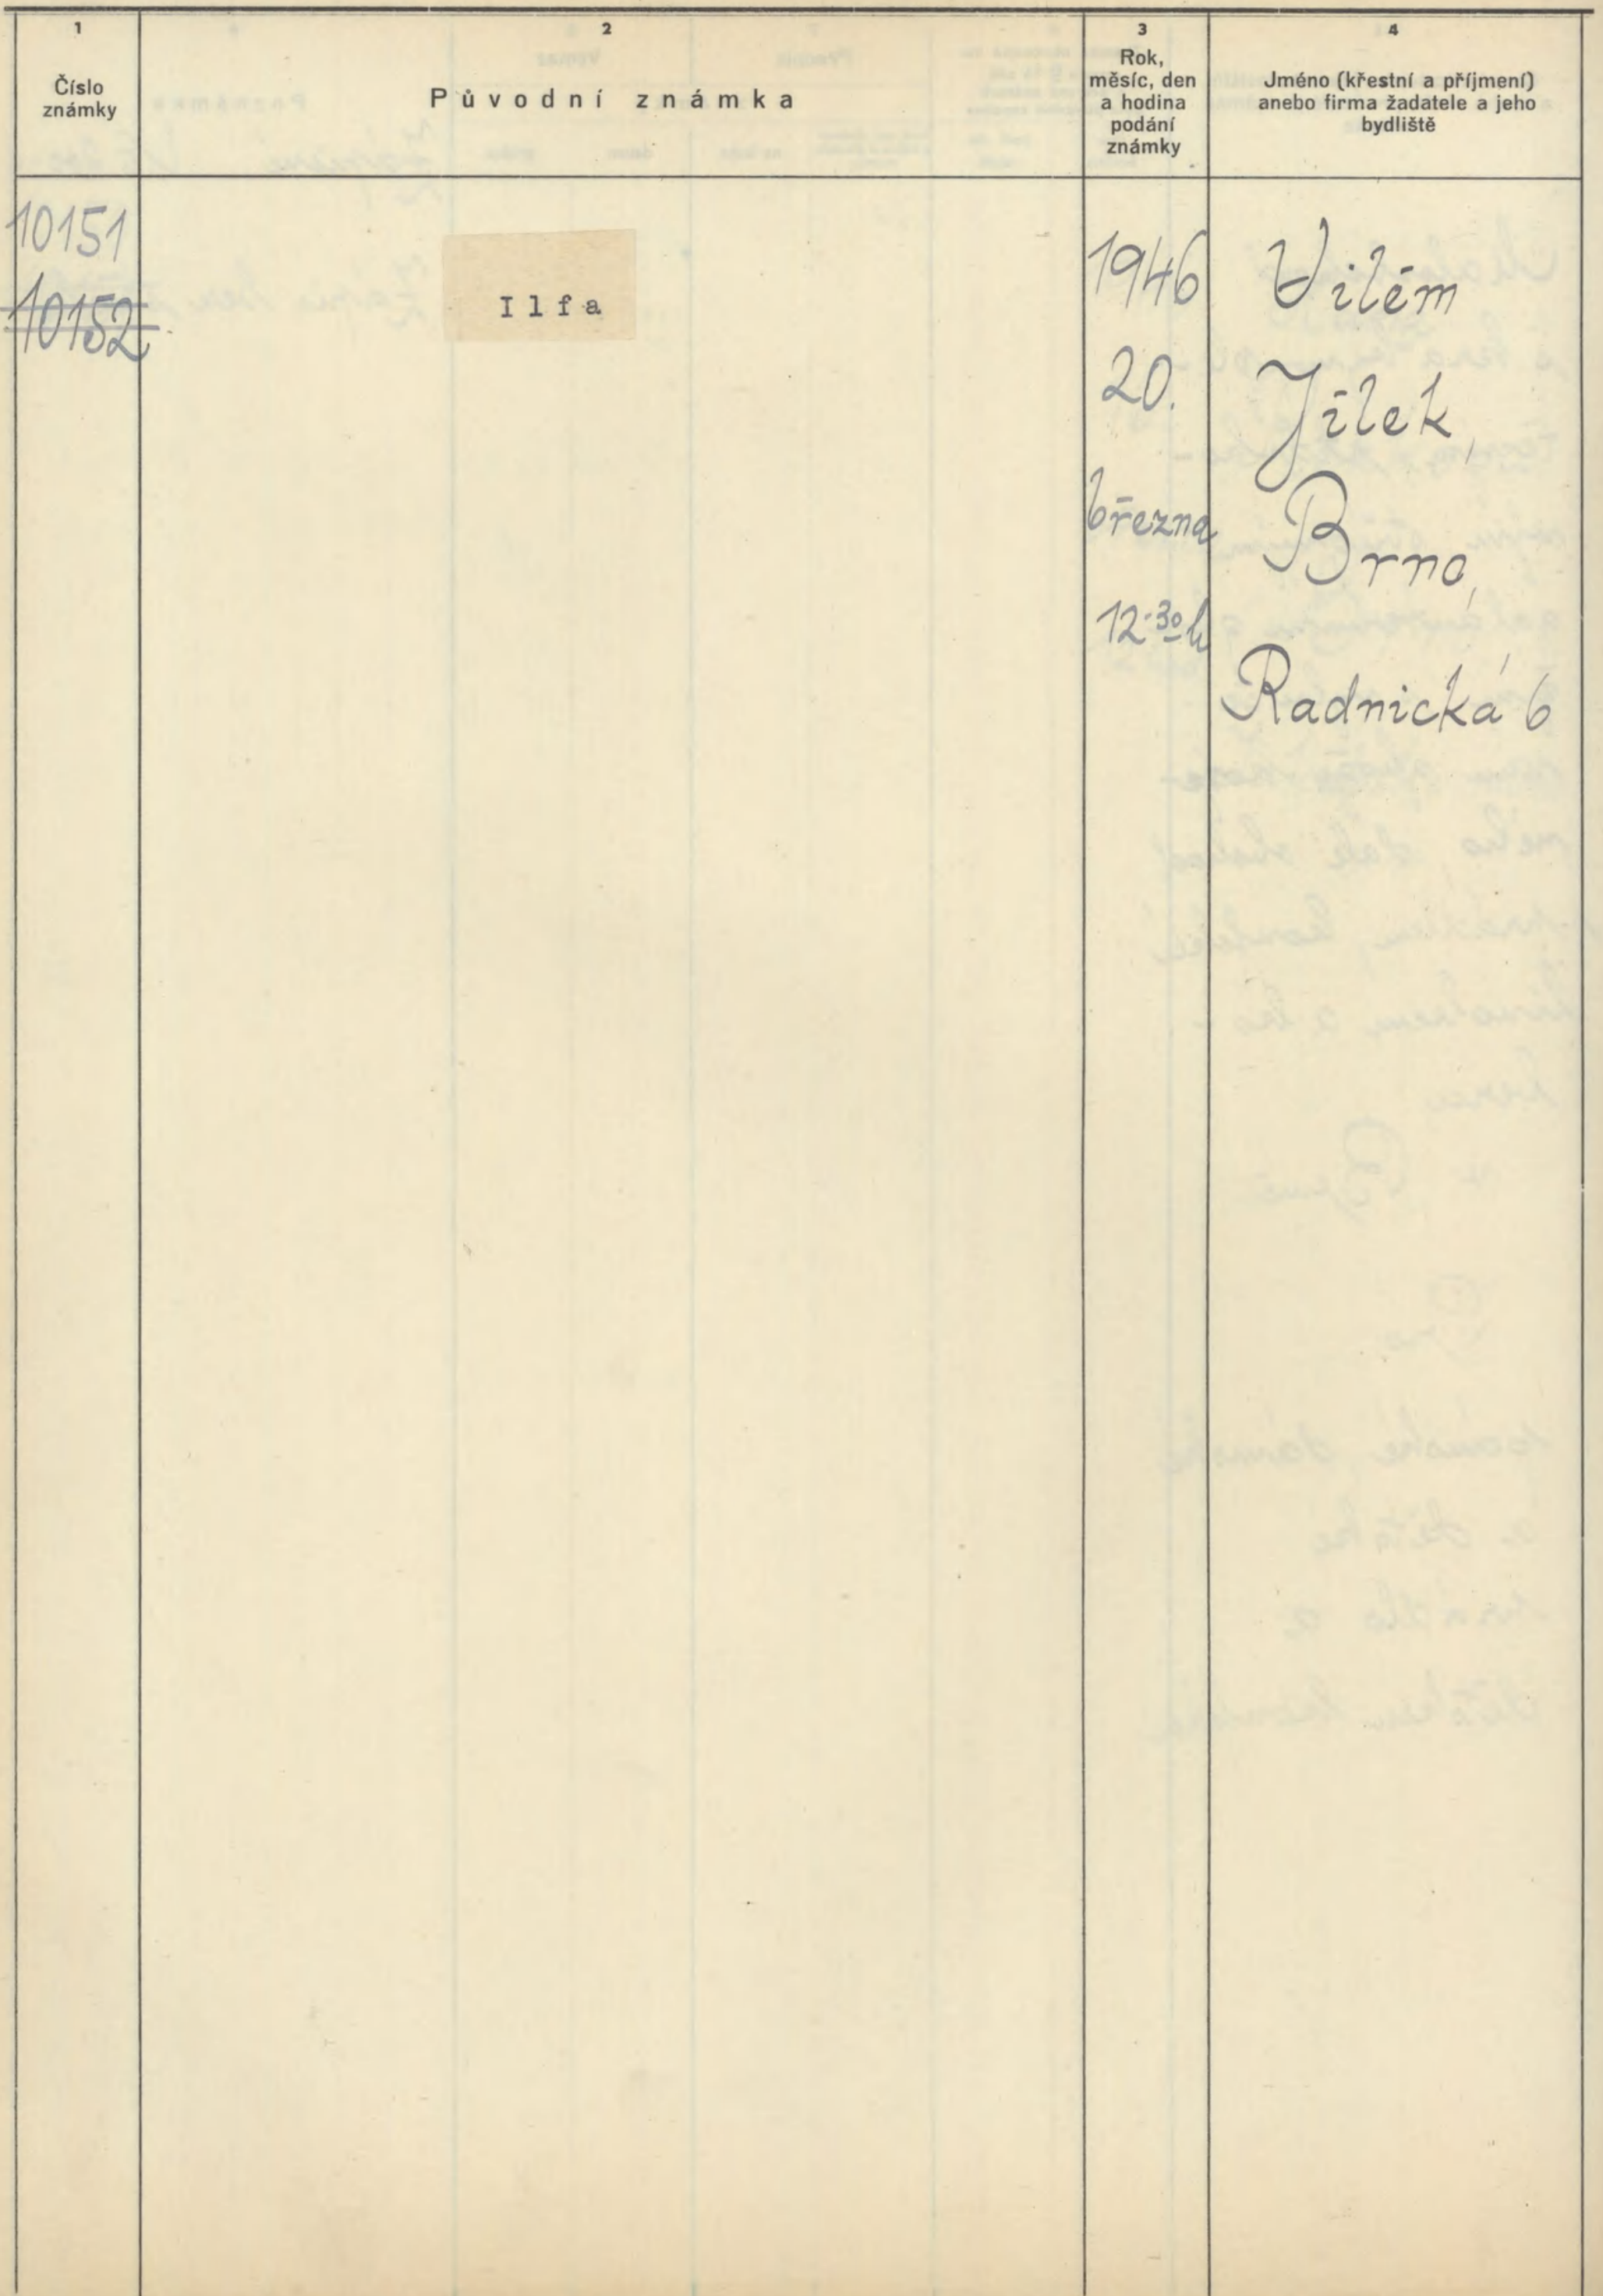 1
Číslo
známky
2
Původní známka
3
Rok,
měsíc, den
a hodina
podání
známky
4
Jméno (křestní a příjmení)
anebo firma žadatele a jeho
bydliště
10151
10152
Ilfa
1946
20.
března
12·30 h
Vilém
Jílek,
Brno,
Radnická 6